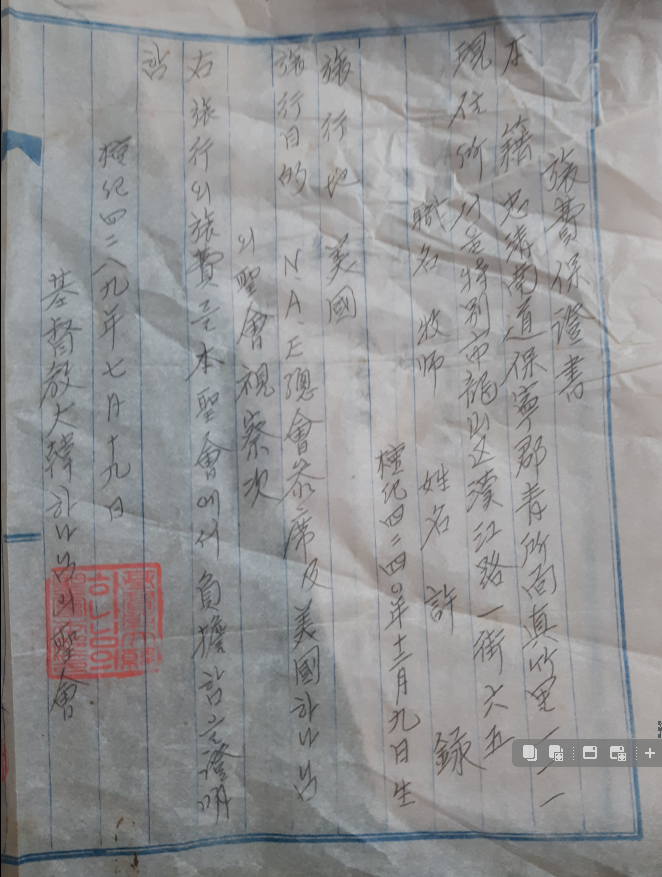 旅費保證書
本籍 忠淸南道保寧郡靑所面眞竹里一二一
現住所 서울特別市龍山区漢江路一街六五
職名 牧師 姓名 許 錄
檀紀四二四〇年十二月九日生
旅行地 美國
旅行目的 N.A.E總會參席及美國하나님
의聖會視察次
右旅行의旅費는本聖會에서負擔함을證明
함
檀紀四二八九年七月十九日
基督敎大韓하나님의聖會.